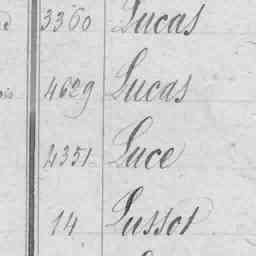 3360 Lucas
4629 Lucas
4351 Luce
14 Lussot